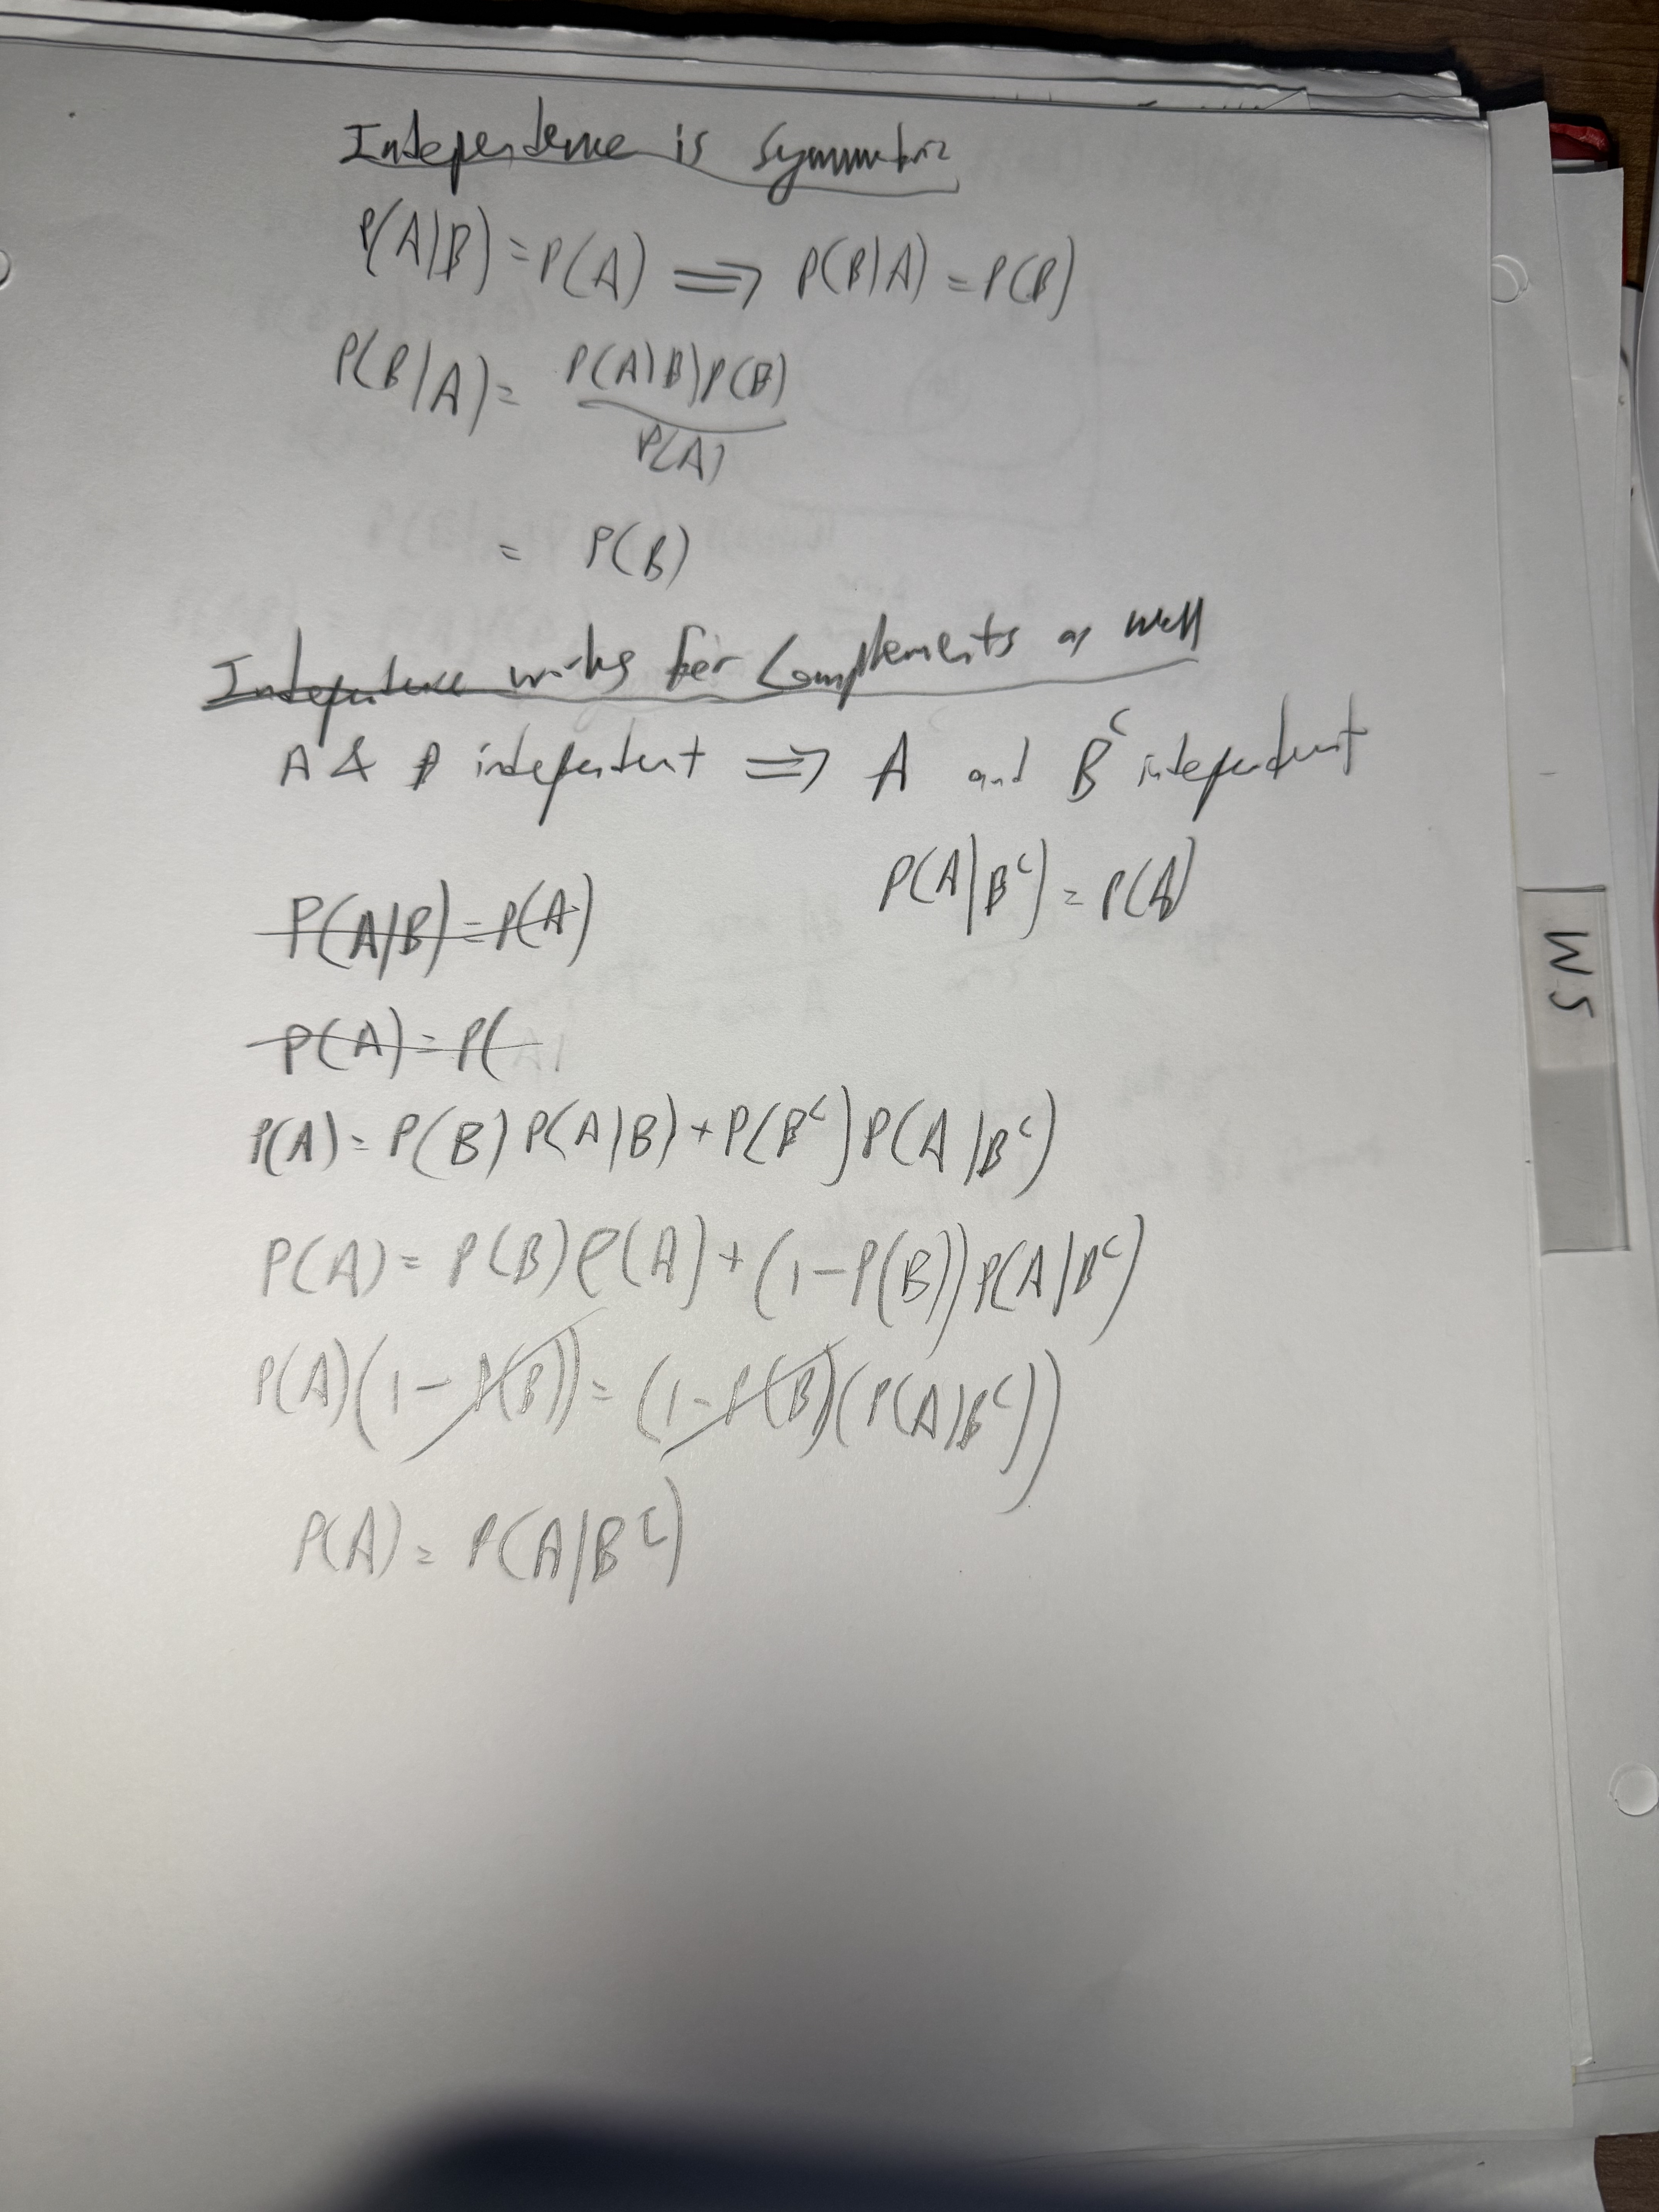 Independence is symmetric
P(A|B) = P(A) ⟹ P(B|A) = P(B)
P(B|A) = P(A|B)P(B)
P(A)
= P(B)
Independence works for complements as well
A & B independent ⟹ A and B^c independent
P(A|B^c) = P(A)
P(A|B) = P(A)
P(A) = P(
P(A) = P(B) P(A|B) + P(B^c) P(A|B^c)
P(A) = P(B) P(A) + (1 - P(B)) P(A|B^c)
P(A)(1 - P(B)) = (1 - P(B)(P(A|B^c))
P(A) = P(A|B^c)
WS